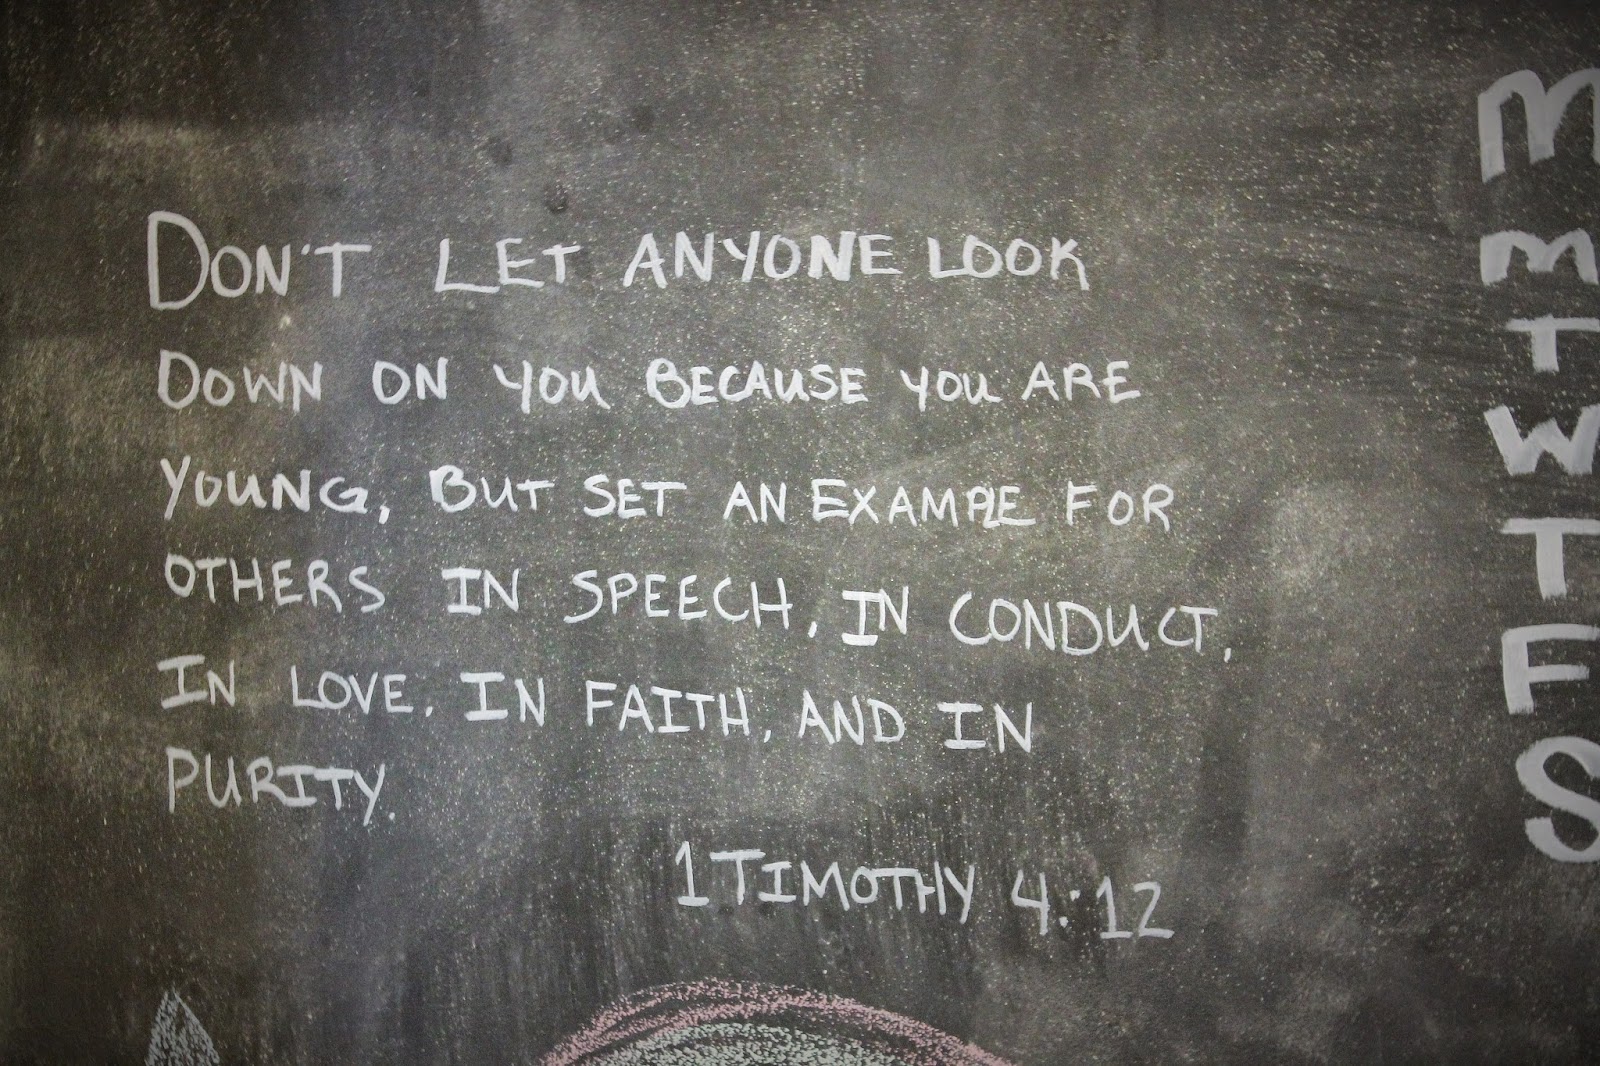 DON'T LET ANYONE LOOK
DOWN ON YOU BECAUSE YOU ARE
YOUNG, BUT SET AN EXAMPLE FOR
OTHERS IN SPEECH, IN CONDUCT,
IN LOVE, IN FAITH, AND IN
PURITY.
1 TIMOTHY 4:12
M
M
T
W
T
F
S